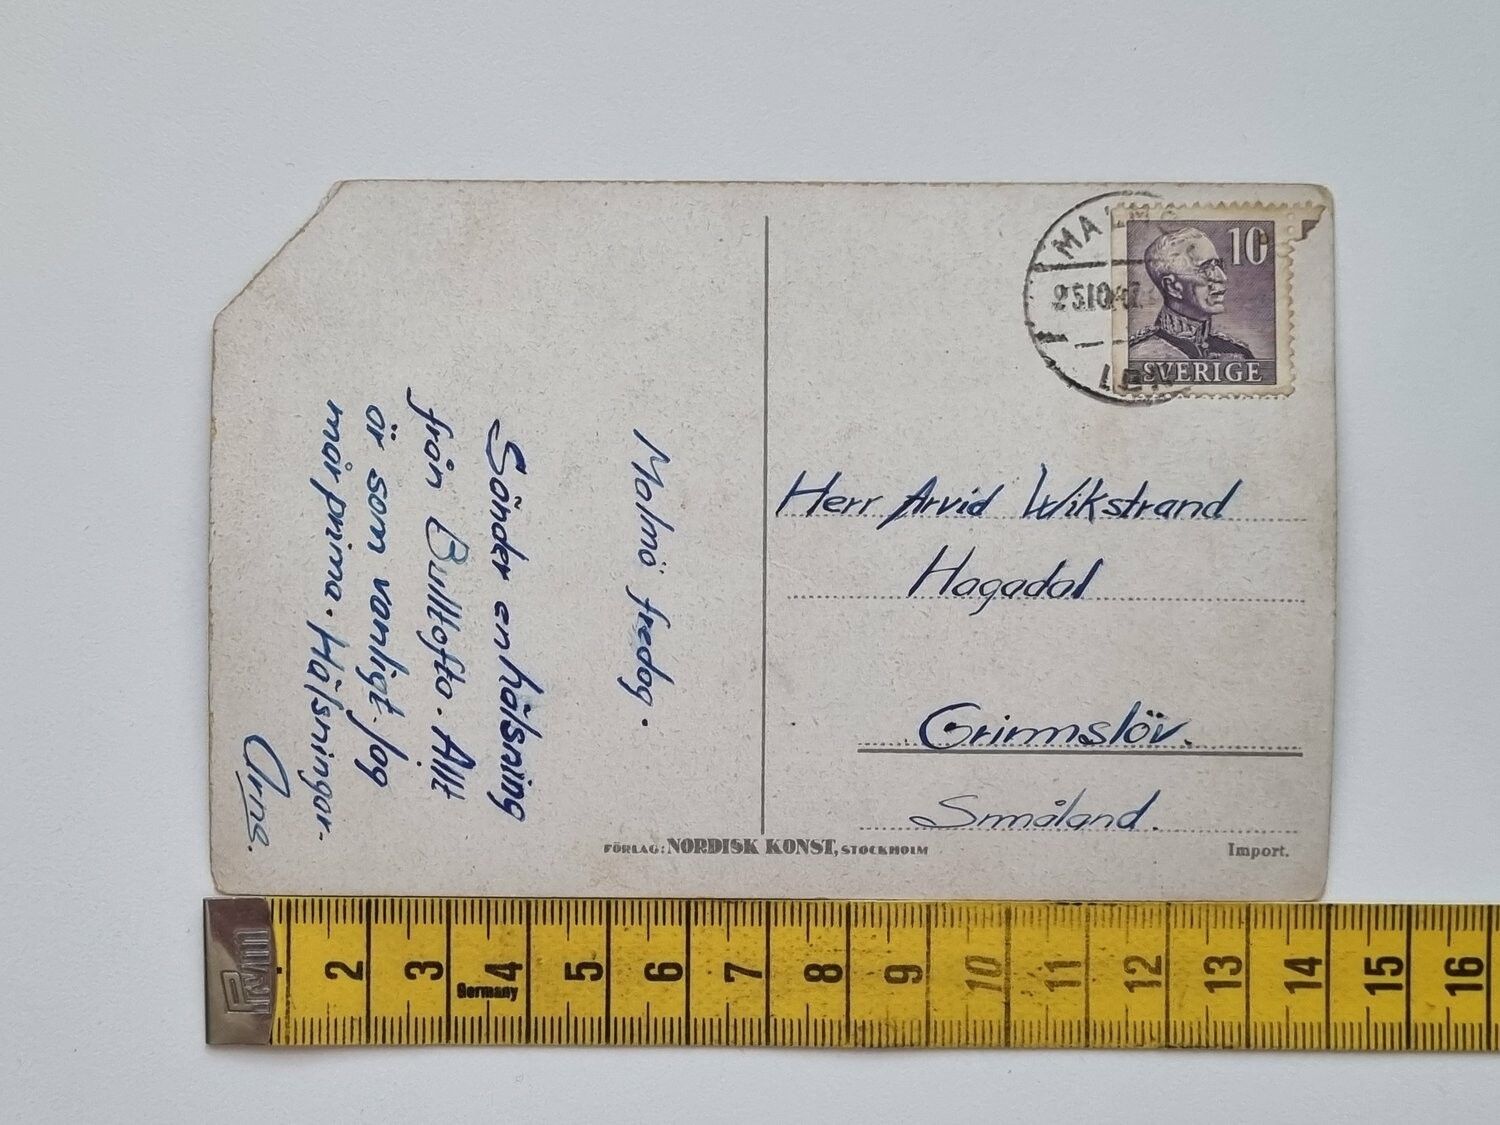 Malmö fredag.
Sänder en hälsning
från Bulltofta. Allt
är som vanligt. Jag
mår prima. Hälsningar
Arne.
MALMÖ
25.10.47
10
SVERIGE
Herr Arvid Wikstrand
Hagadal
Grimmslöv.
Småland.
FÖRLAG: NORDISK KONST, STOCKHOLM
Import.
2 3 4 5 6 7 8 9 10 11 12 13 14 15 16
Germany